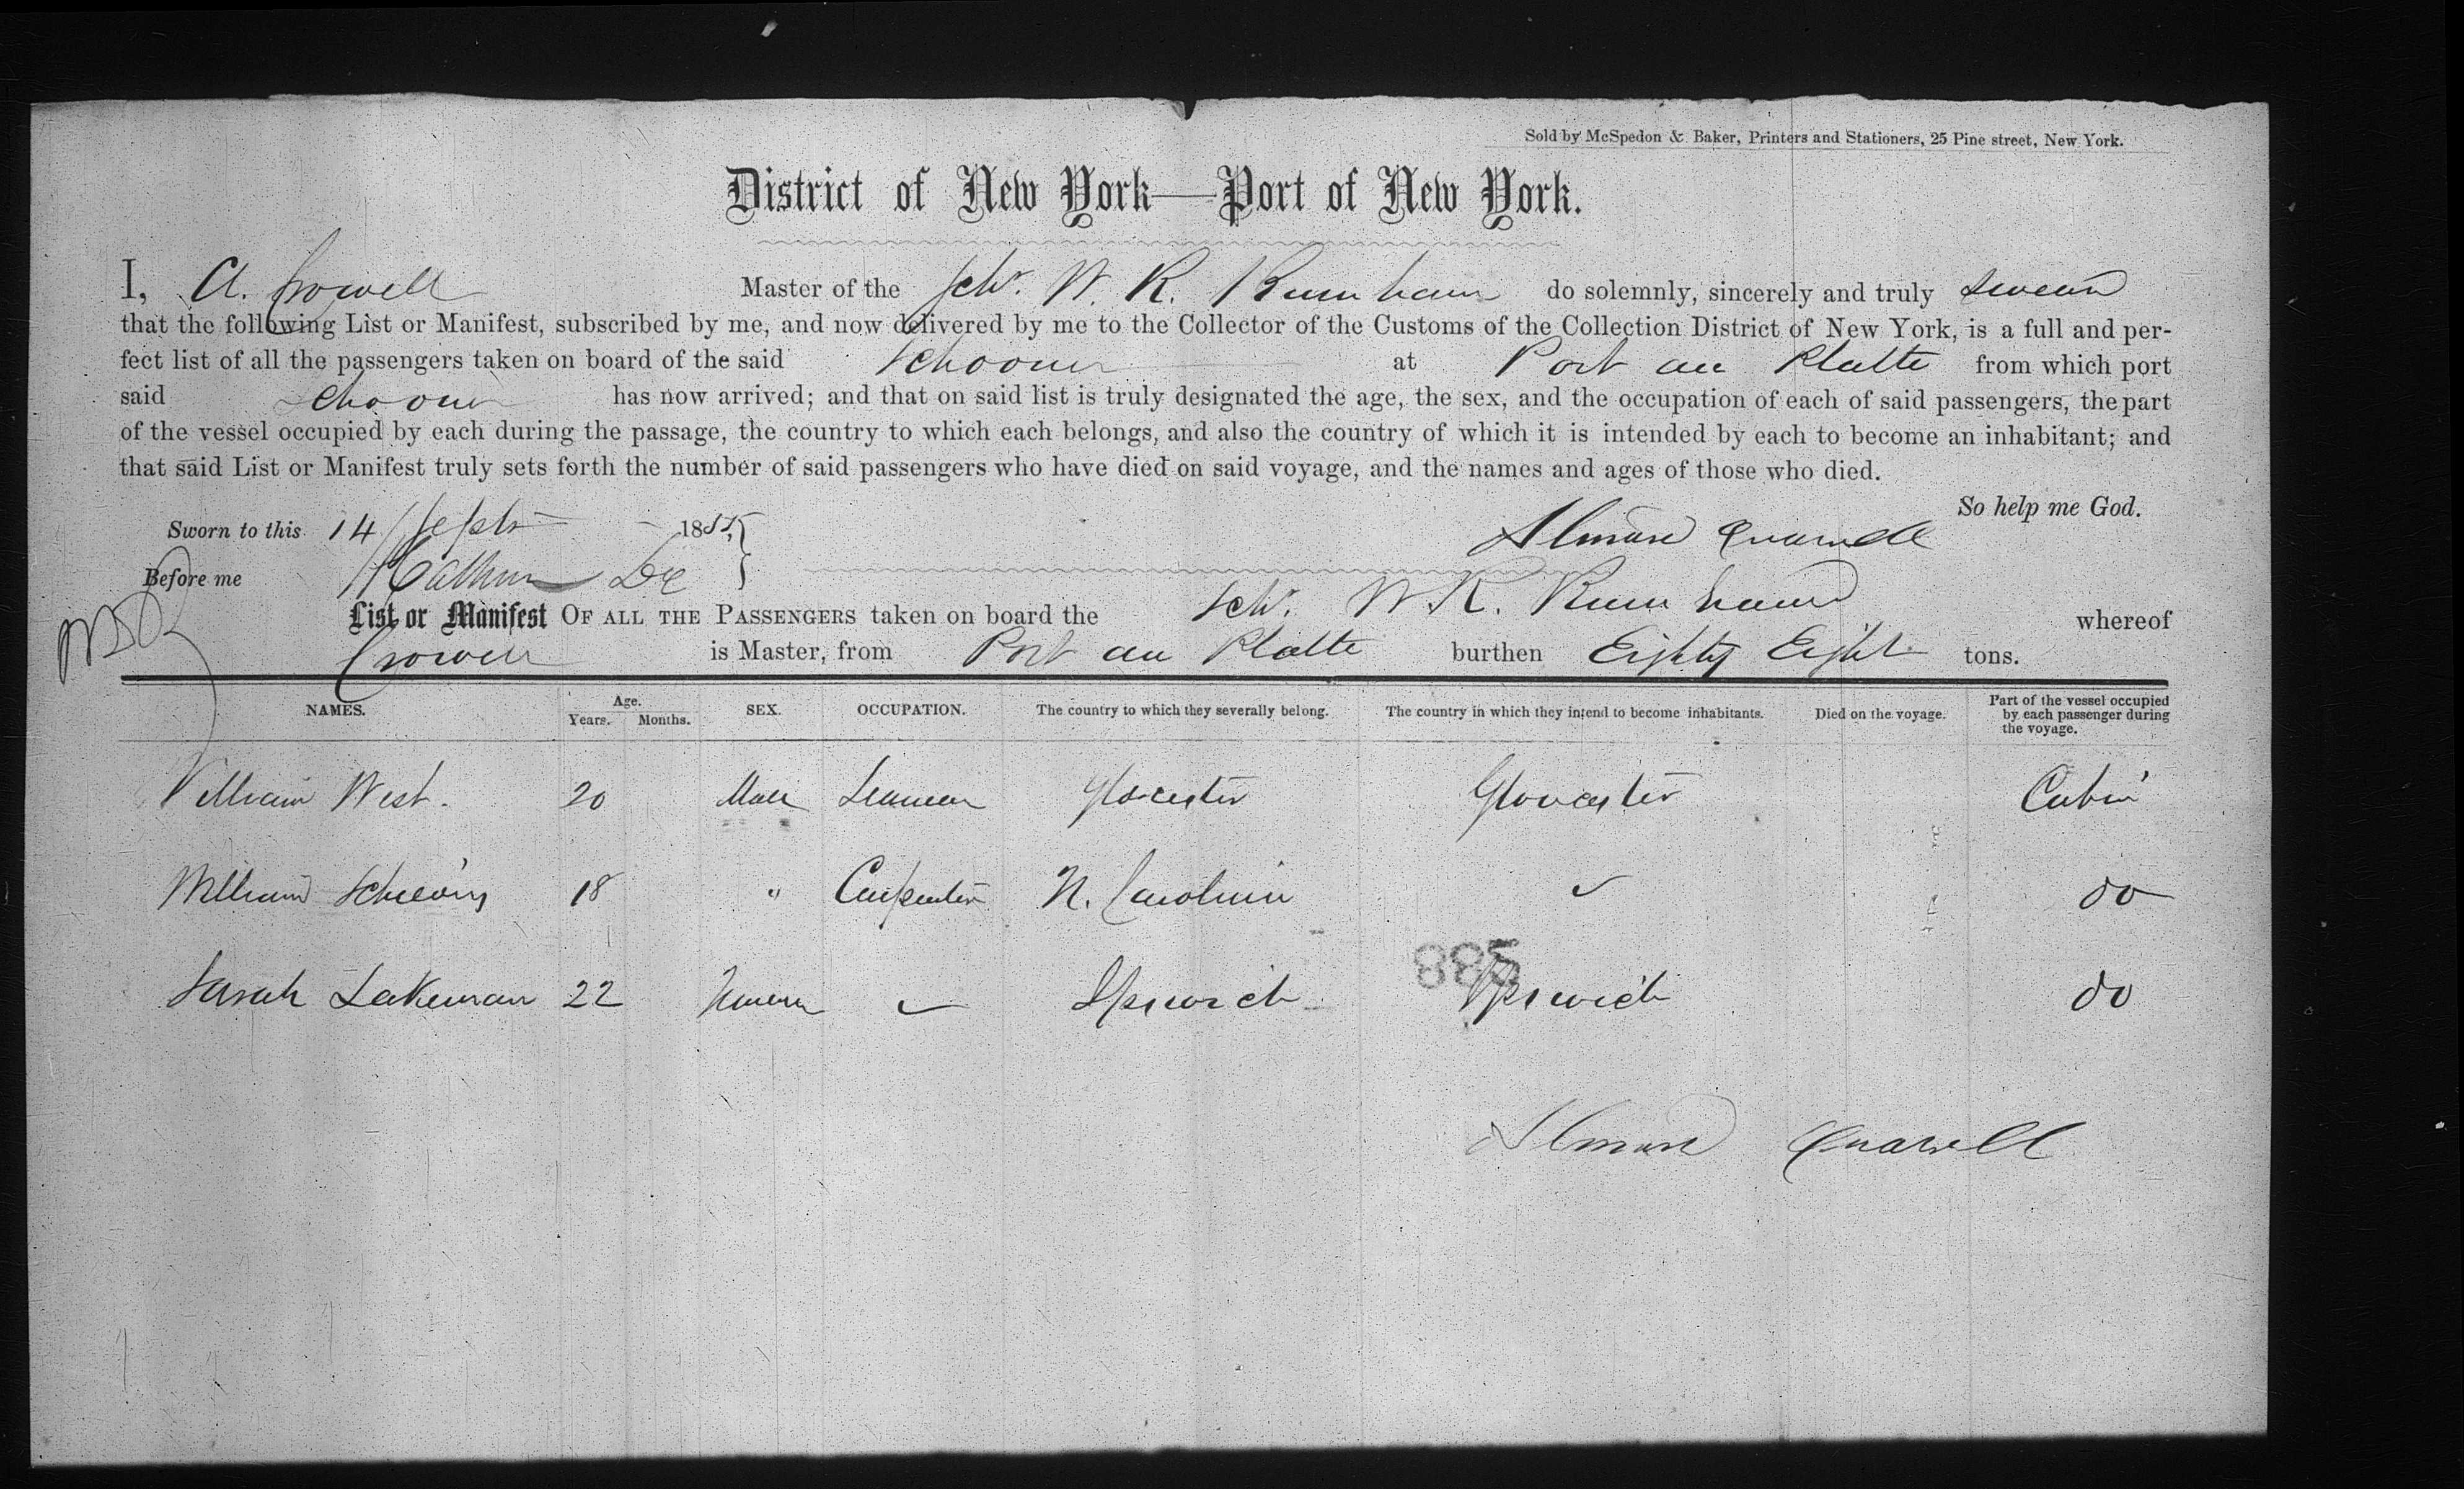 Sold by McSpedon & Baker, Printers and Stationers, 25 Pine street, New York.
District of New York—Port of New York.
I, A. Crowell Master of the Schr. W. R. Burnham do solemnly, sincerely and truly swear
that the following List or Manifest, subscribed by me, and now delivered by me to the Collector of the Customs of the Collection District of New York, is a full and per-
fect list of all the passengers taken on board of the said Schooner at Port au Platte from which port
said Schooner has now arrived; and that on said list is truly designated the age, the sex, and the occupation of each of said passengers, the part
of the vessel occupied by each during the passage, the country to which each belongs, and also the country of which it is intended by each to become an inhabitant; and
that said List or Manifest truly sets forth the number of said passengers who have died on said voyage, and the names and ages of those who died.
So help me God.
Sworn to this 14 Sept 185
Before me
List or Manifest OF ALL THE PASSENGERS taken on board the Schr. W. R. Burnham whereof
Crowell is Master, from Port au Platte burthen Eighty Eight tons.
NAMES. Age. Years. Months. SEX. OCCUPATION. The country to which they severally belong. The country in which they intend to become inhabitants. Died on the voyage. Part of the vessel occupied by each passenger during the voyage.
William West. 20 Male Seaman Glocester Gloucester Cabin
William 18 " Carpenter N. Carolina do
885
Sarah Lakeman 22 Ipswich Ipswich do